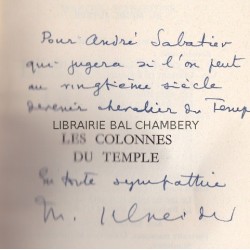 Pour André Sabatier
qui jugera si l'on peut
au vingtième siècle
devenir chevalier du Temple
LIBRAIRIE BAL CHAMBERY
LES COLONNES
DU TEMPLE
En toute sympathie
M. Schneider